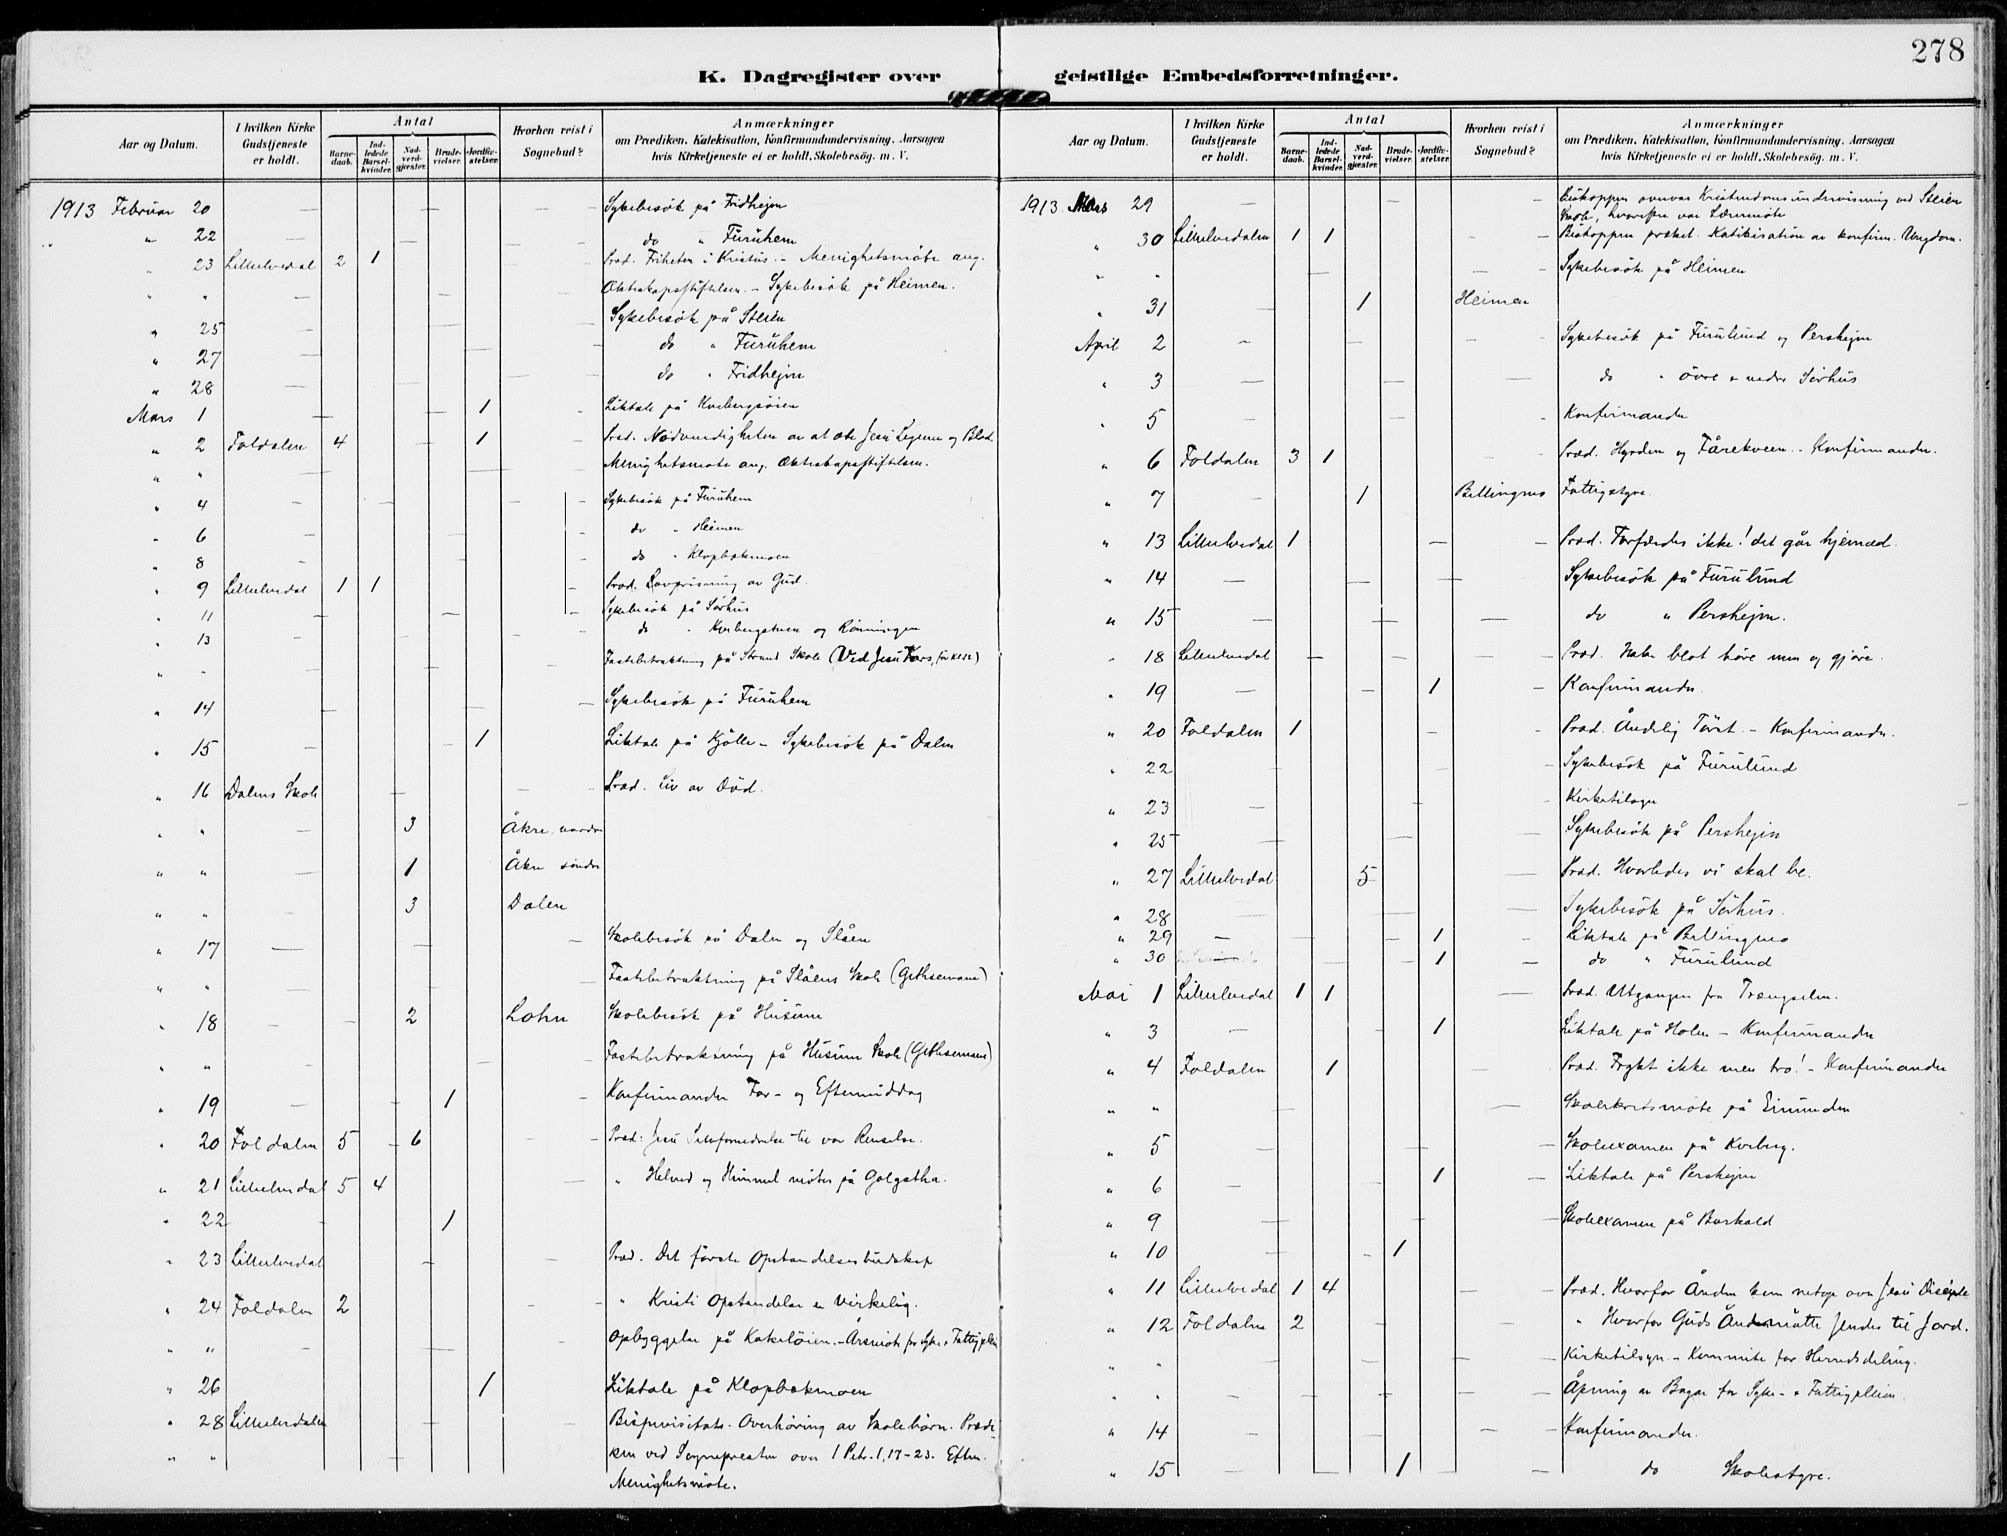 278
K. Dagregister over geistlige Embedsforretninger.
Aar og Datum. I hvilken Kirke Gudstjeneste er holdt. Antal Barnedaab. Indledede Barselkvinder. Nadverdgjæster. Brudevielser. Jordfæstelser. Hvorhen reist i Sognebud? Anmærkninger om Prædiken, Katekisation, Konfirmandundervisning, Aarsagen hvis Kirketjeneste ei er holdt, Skolebesög. m. V.
1913 Februar 20 — Sykebesök på Fridhejm
" 22 — do " Furuhem
" 23 Lilleelvedal 2 1 Præd. Friheten i Kristus. – Menighetsmöte ang.
" " Ekteskapsstiftelsen. – Sykebesök på Heimen.
" 25 — Sykebesök på Steien
" 27 — do " Furuhem
" 28 — do " Fridhejm
Mars 1 — 1 Liktale på Kvebergsöien
" 2 Foldalen 4 1 Præd. Nödvendigheten av at æte Jesu Legeme og Blod.
" " Menighetsmöte ang. Ekteskapsstiftelsen.
" 4 — Sykebesök på Furuhem
" 6 — do " Heimen
" 8 — do " Klopbækmoen
" 9 Lilleelvedal 1 1 Præd. Lovprisning av Gud.
" 11 — Sykebesök på Sörhus
" 13 — do " Kvebergstuen og Rönningen
" " — Fastebetraktning på Strand Skole (Ved Jesu Kors,
" 14 — Sykebesök på Furuhem
" 15 — 1 Liktale på Kjölle – Sykebesök på Dalen
" 16 Dalens Skole Præd. Liv av Död.
" " — 3 Åkre nordre
" " — 1 Åkre söndre
" " — 3 Dalen
" 17 — Skolebesök på Dalen og Slåen
" " — Fastebetraktning på Slåens Skole (Gethsemane)
" 18 — 2 Lohn Skolebesök på Husum
" " — Fastebetraktning på Husum Skole (Gethsemane)
" 19 — 1 Konfirmander For- og Eftermiddag
" 20 Foldalen 5 6 Præd: Jesu Selvfornedrelse til vor Renselse.
" 21 Lilleelvedal 5 4 " Helved og Himmel mötes på Golgatha.
" 22 1
" 23 Lilleelvedal Præd. Det förste Opstandelsesbudskap
" 24 Foldalen 2 " Kristi Opstandelse er virkelig.
" " — Opbyggelse på Kakelöien. – Årsmöte for Syke + Fattigpleien
" 26 1 Liktale på Klopbækmoen
" 28 Lilleelvedalen Bispevisitats. Overhöring av Skolebörn. Prædi-
" " ken ved Sognepresten over 1 Petr. 1,17-23. Efterm.
Menighetsmöte.
Aar og Datum. I hvilken Kirke Gudstjeneste er holdt. Antal Barnedaab. Indledede Barselkvinder. Nadverdgjæster. Brudevielser. Jordfæstelser. Hvorhen reist i Sognebud? Anmærkninger om Prædiken, Katekisation, Konfirmandundervisning, Aarsagen hvis Kirketjeneste ei er holdt, Skolebesög. m. V.
1913 Mars 29 — Biskoppen overvar Kristendomsundervisning ved Steien
Skole, hvorefter var Lærermöte
" 30 Lilleelvedalen 1 1 Biskoppen præket. Katikisation av konfirm. Ungdom.
" " — Sykebesök på Heimen
" 31 — 1 Heimen
April 2 — Sykebesök på Furulund og Pershejm
" 3 — do " övre + nedre Sörhus
" 5 — Konfirmander
" 6 Foldalen 3 1 Præd. Hyrden og Fårekveen. – Konfirmander.
" 7 — 1 Bellingmo Fattigstyre.
" 13 Lilleelvedal 1 Præd. Forfærdes ikke! det går hjemad.
" 14 — Sykebesök på Furulund
" 15 — do " Pershejm.
" 18 Lilleelvedal Præd. Ikke blot höre men og gjöre.
" 19 — 1 Konfirmander
" 20 Foldalen 1 Præd. Åndelig Törst. – Konfirmander.
" 22 — Sykebesök på Furulund
" 23 — Kirketilsyn
" 25 — Sykebesök på Pershejm
" 27 Lilleelvedal 5 Præd. Hvorledes vi skal be.
" 28 — Sykebesök på Sörhus.
" 29 — 1 Liktale på Bellingmo
" 30 1 do " Furulund
Mai 1 Lilleelvedal 1 1 Præd. Utgangen fra Trængselen.
" 3 — 1 Liktale på Holen – Konfirmander
" 4 Foldalen 1 Præd. Frykt ikke men tro! – Konfirmander
" " — Skolekretsmöte på Einunden
" 5 — Skoleexamen på Kveberg.
" 6 — 1 Liktale på Pershejm
" 9 — Skoleexamen på Barkald
" 10 — 1
" 11 Lilleelvedal 1 4 Præd. Hvorfor Ånden kom netop over Jesu Disciple
" 12 Foldalen 2 " Hvorfor Guds Ånd måtte sendes til Jord.
" " — Kirketilsyn – Kommite for Herredsdeling.
" " — Åpning av Bazar for Syke- + Fattigpleien.
" 14 — Konfirmander.
" 15 — 1 do Skolestyre.